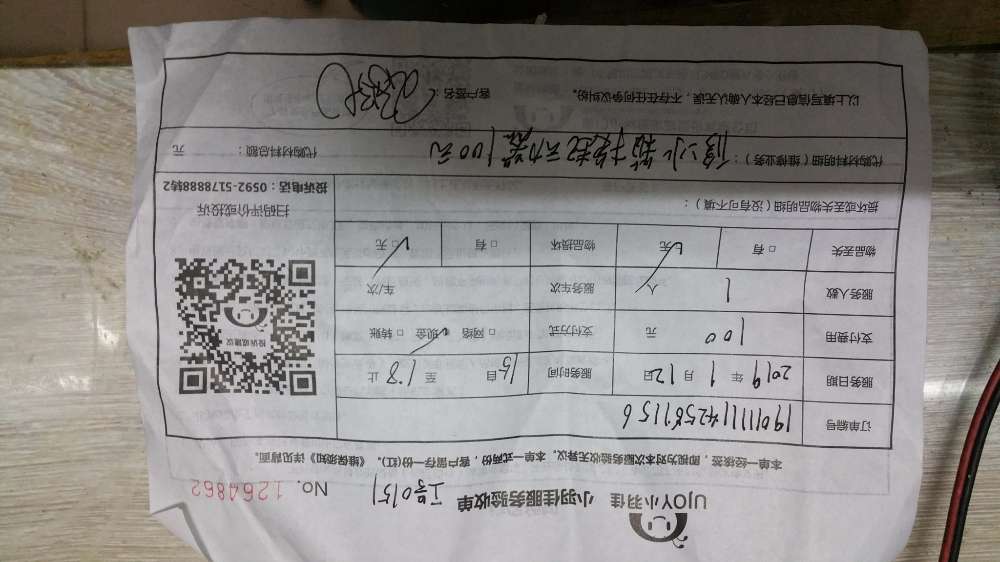 UJOY小羽佳 小羽佳服务验收单
工号0151
No. 1264862
本单一经核签，即视为对本次服务验收无异议，本单一式两份，客户留存一份(红)。《维保须知》详见背面。
订单编号 1901111142567115 6
服务日期 2019年1月12日 服务时间 15自 至18止
支付费用 100 元 支付方式 □网络 ✓现金 □转账
服务人数 1 人 服务车次 车/次
物品丢失 □有 ✓无 物品损坏 □有 ✓无
损坏或丢失物品明细（没有可不填）：
投诉或建议
扫码评价或投诉
投诉电话：0592-5178888转2
代购材料明细（维修业务）： 修冰箱 100元
代购材料总额： 元
以上填写信息已经本人确认无误，不存在任何争议纠纷。 客户签名：